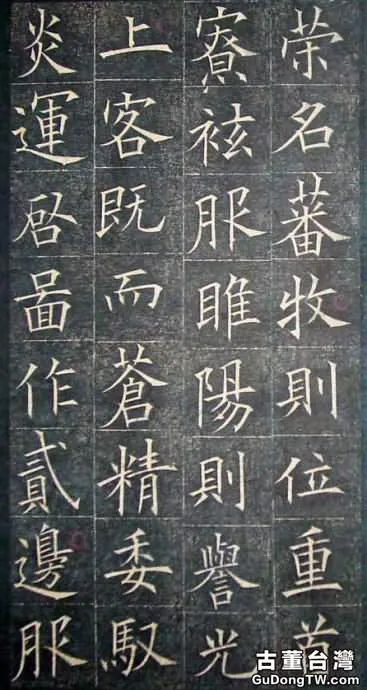 荣名蕃牧則位重首
寮袨服睢陽則譽光
上客既而蒼精委馭
炎運启啚作貳邊服
古董台灣
GuDongTW.com